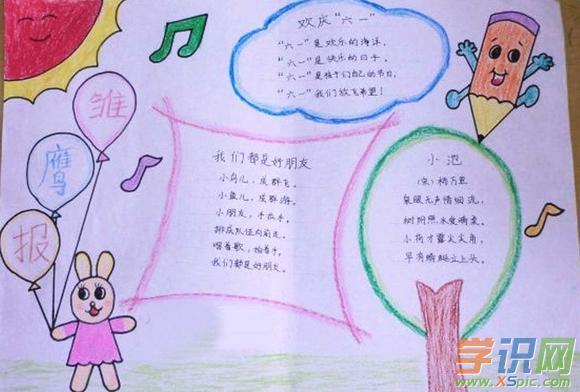 欢庆“六一”
“六一”是欢乐的海洋,
“六一”是快乐的日子,
“六一”是孩子们自己的节日,
“六一”我们放飞希望!
雏
鹰
报
我们都是好朋友
小鸟儿,成群飞。
小鱼儿,成群游。
小朋友,手拉手。
排成队伍向前走。
唱着歌,拍着手。
我们都是好朋友。
小池
(宋)杨万里
泉眼无声惜细流,
树阴照水爱晴柔。
小荷才露尖尖角,
早有蜻蜓立上头。
学识网
www.XSpic.com